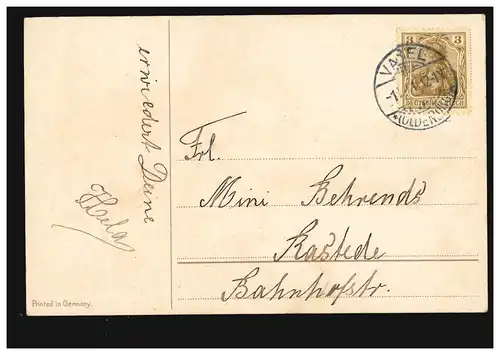 erwiedert Deine
Hela
Frl.
Mini Behrends
Rastede
Bahnhofstr.
Printed in Germany.
3 3
VAREL
(OLDENBURG)
DEUTSCHES REICH